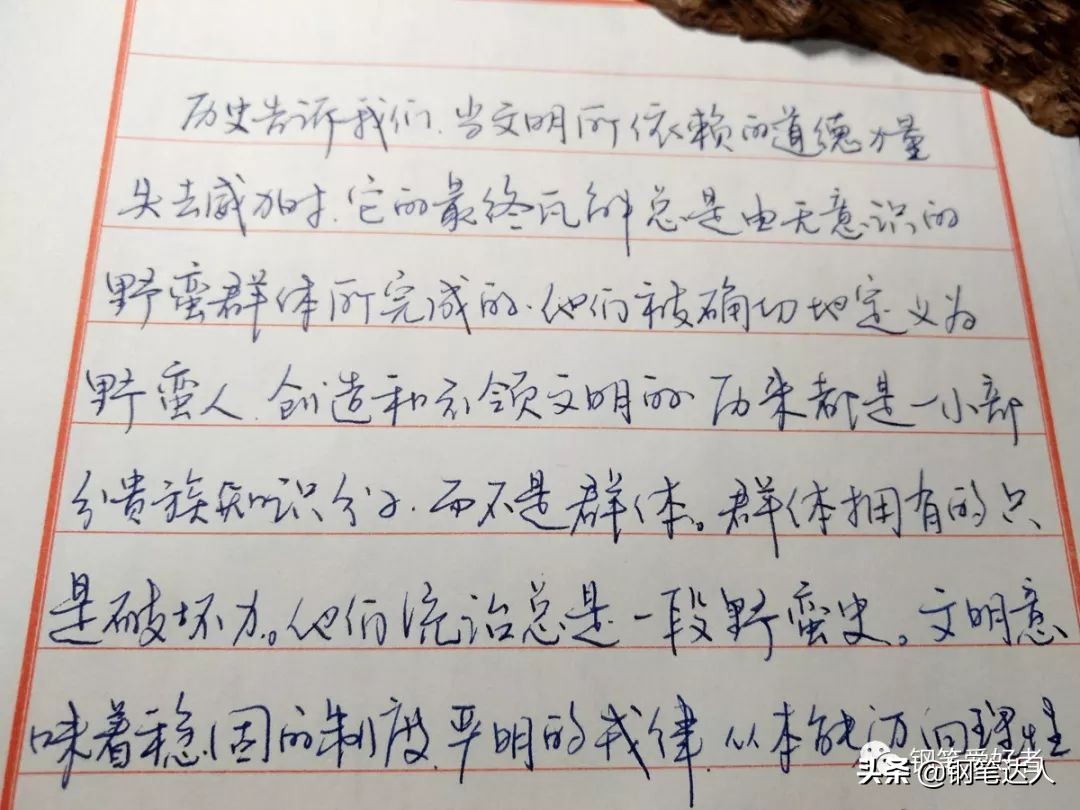 历史告诉我们,当文明所依赖的道德力量
失去威力时,它的最终瓦解总是由无意识的
野蛮群体所完成的,他们被确切地定义为
野蛮人,创造和引领文明的历来都是一小部
分贵族知识分子,而不是群体。群体拥有的只
是破坏力。他们统治总是一段野蛮史。文明意
味着稳固的制度,严明的戒律,从本能迈向理性
钢笔爱好者
头条@钢笔达人